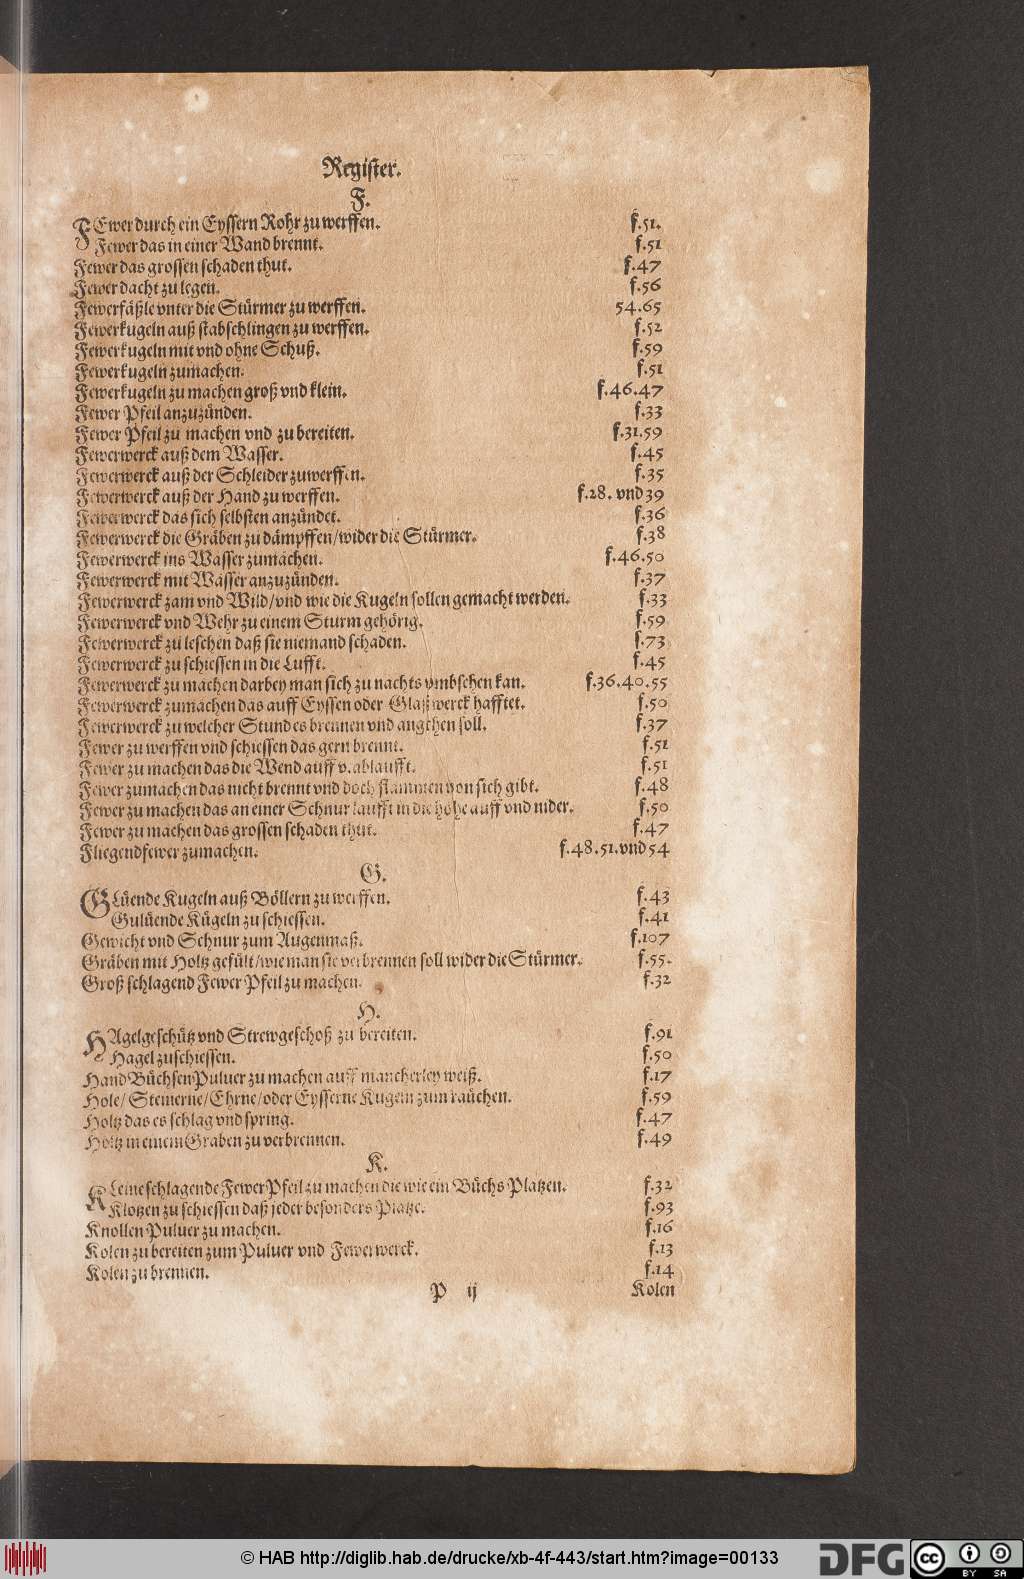 Register.
F.
FEwer durch ein Eyssern Rohr zu werffen. f.51.
Fewer das in einer Wand brennt. f.51
Fewer das grossen schaden thut. f.47
Fewer dacht zu legen. f.56
Fewerfäßle vnter die Stürmer zu werffen. 54.65
Fewerkugeln auß stabschlingen zu werffen. f.52
Fewerkugeln mit vnd ohne Schuß. f.59
Fewerkugeln zumachen. f.51
Fewerkugeln zu machen groß vnd klein. f.46.47
Fewer Pfeil anzuzünden. f.33
Fewer Pfeil zu machen vnd zu bereiten. f.31.59
Fewerwerck auß dem Wasser. f.45
Fewerwerck auß der Schleider zuwerffen. f.35
Fewerwerck auß der Hand zu werffen. f.28. vnd 39
Fewerwerck das sich selbsten anzündet. f.36
Fewerwerck die Gräben zu dämpffen/wider die Stürmer. f.38
Fewerwerck ins Wasser zumachen. f.46.50
Fewerwerck mit Wasser anzuzünden. f.37
Fewerwerck zam vnd Wild/vnd wie die Kugeln sollen gemacht werden. f.33
Fewerwerck vnd Wehr zu einem Sturm gehörig. f.59
Fewerwerck zu leschen daß sie niemand schaden. f.73
Fewerwerck zu schiessen in die Lufft. f.45
Fewerwerck zu machen darbey man sich zu nachts vmbsehen kan. f.36.40.55
Fewerwerck zumachen das auff Eyssen oder Glaßwerck hafftet. f.50
Fewerwerck zu welcher Stund es brennen vnd angehen soll. f.37
Fewer zu werffen vnd schiessen das gern brennt. f.51
Fewer zu machen das die Wend auff v. ablaufft. f.51
Fewer zumachen das nicht brennt vnd doch flammen von sich gibt. f.48
Fewer zu machen das an einer Schnur laufft in die höhe auff vnd nider. f.50
Fewer zu machen das grossen schaden thut. f.47
Fliegendfewer zumachen. f.48.51.vnd 54
G.
GLüende Kugeln auß Böllern zu werffen. f.43
Gulüende Kügeln zu schiessen. f.41
Gewicht vnd Schnur zum Augenmaß. f.107
Gräben mit Holtz gefült/wie man sie verbrennen soll wider die Stürmer. f.55.
Groß schlagend Fewer Pfeil zu machen. f.32
H.
HAgelgeschütz vnd Strewgeschoß zu bereiten. f.91
Hagel zuschiessen. f.50
Hand Büchsen Puluer zu machen auff mancherley weiß. f.17
Hole/ Steinerne/ Ehrne/oder Eysserne Kugeln zum rauchen. f.59
Holtz das es schlag vnd spring. f.47
Holtz in einem Graben zu verbrennen. f.49
K.
KLeine schlagende Fewer Pfeil zu machen die wie ein Büchs Platzen. f.32
Klotzen zu schiessen daß jeder besonders Platze. f.93
Knollen Puluer zu machen. f.16
Kolen zu bereiten zum Puluer vnd Fewerwerck. f.13
Kolen zu brennen. f.14
P ij Kolen
© HAB http://diglib.hab.de/drucke/xb-4f-443/start.htm?image=00133
DFG
cc
BY SA